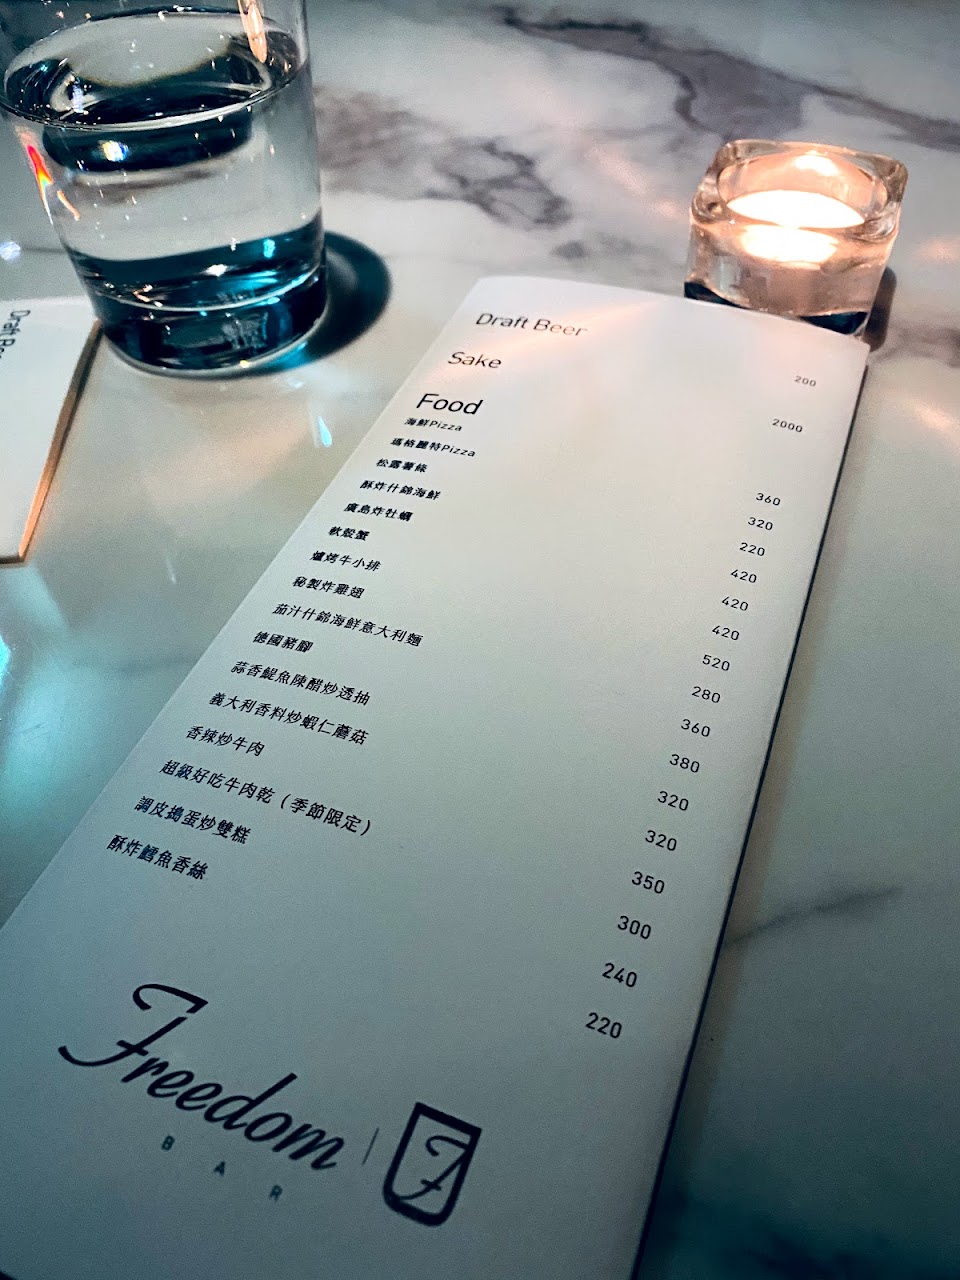 Draft Beer 200
Sake 2000
Food
海鮮Pizza 360
瑪格麗特Pizza 320
松露薯條 220
酥炸什錦海鮮 420
廣島炸牡蠣 420
軟殼蟹 420
爐烤牛小排 520
秘製炸雞翅 280
茄汁什錦海鮮意大利麵 360
德國豬腳 380
蒜香鯷魚陳醋炒透抽 320
義大利香料炒蝦仁蘑菇 320
香辣炒牛肉 350
超級好吃牛肉乾（季節限定） 300
調皮搗蛋炒雙糕 240
酥炸鱈魚香絲 220
Freedom
BAR
F
Draft Bee